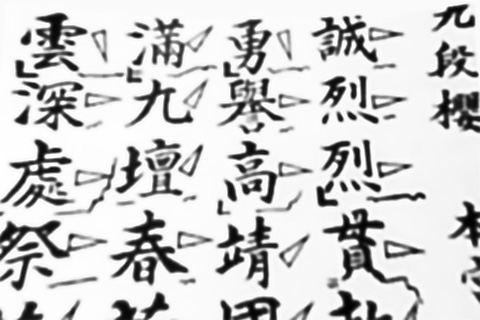 九段櫻 本
誠烈烈貫
勇譽高靖國
滿九壇春
雲深處祭